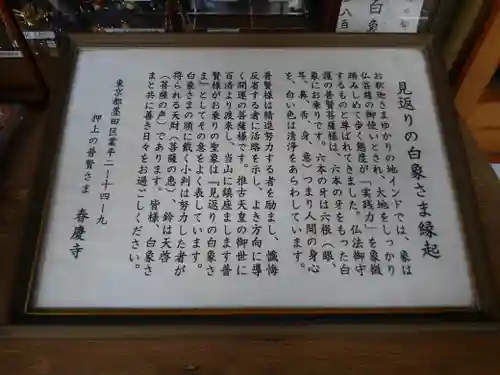 見返りの白象さま縁起
お釈迦さまゆかりの地インドでは、象は
仏菩薩の御使いとされ、大地をしっかり
踏みしめて歩く態度が「実践力」を象徴
するものと尊ばれてきました。仏法御守
護の普賢菩薩様は、六本の牙をもった白
象にお乗りです。六本の牙は六根（眼、
耳、鼻、舌、身、意）つまり人間の身心
を、白い色は清浄をあらわしています。
普賢様は精進努力する者を励まし、懺悔
反省する者に活路を示し、よき方向に導
く開運の菩薩様です。推古天皇の御世に
百済より渡来し、当山に鎮座します普
賢様がお乗りの聖象は『見返りの白象さ
ま』としてその意をよく表しています。
白象さまの頭に戴く小判は努力した者が
得られる天財（菩薩の恵）、鈴は天啓
（菩薩の声）であります。皆様、白象さ
まと共に善き日々をお過ごしください。
東京都墨田区業平二ー十四ー九
押上の普賢さま 春慶寺
白象